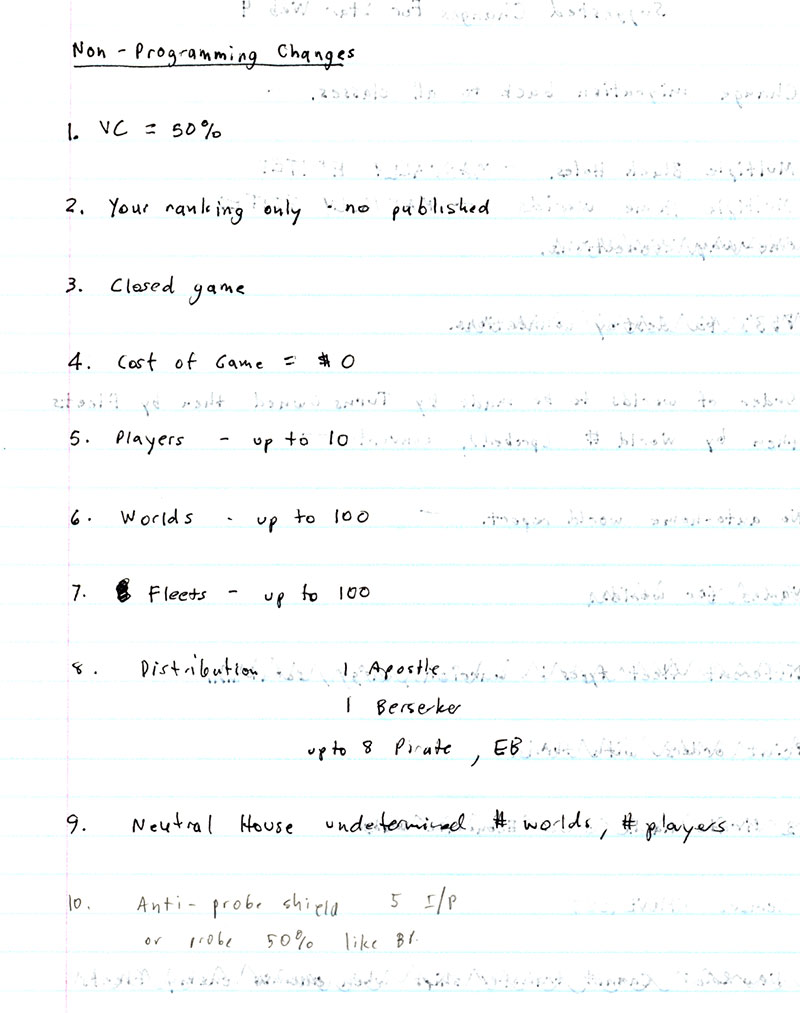 Non - Programming Changes
1. VC = 50%
2. Your ranking only - no published
3. Closed game
4. Cost of Game = $0
5. Players - up to 10
6. Worlds - up to 100
7. Fleets - up to 100
8. Distribution 1 Apostle
1 Berserker
up to 8 Pirate, EB
9. Neutral House undetermined # worlds, # players
10. Anti-probe shield 5 I/P
or probe 50% like